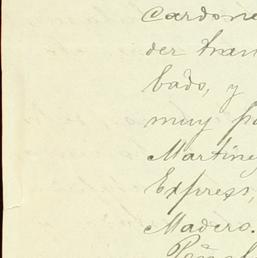 Cardone
der tran
bado, y
muy pa
Martine
Express,
Madero.